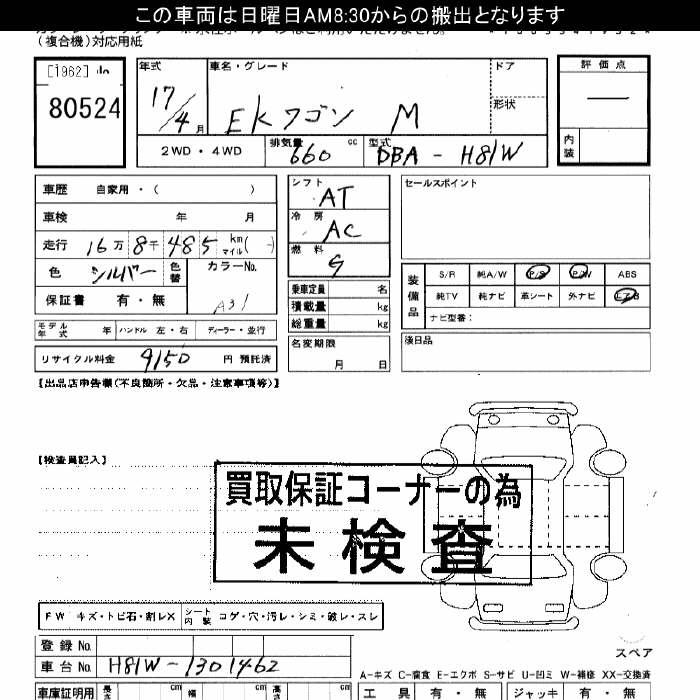 この車両は日曜日AM8:30からの搬出となります
(複合機)対応用紙
[1962]
80524
年式
17/4月
車名・グレード
EKワゴン M
ドア
形状
評価点
内装
2WD・4WD
排気量 660 cc
型式 DBA - H81W
車歴 自家用・( )
車検 年 月
走行 16万8千485 km マイル( )
色 シルバー 色替
カラーNo. A31
保証書 有・無
シフト AT
冷房 AC
燃料 G
セールスポイント
装備品
S/R 純A/W P/S P/W ABS
純TV 純ナビ 革シート 外ナビ エアB
ナビ型番:
乗車定員 名
積載量 kg
総重量 kg
モデル年式 年 ハンドル 左・右 ディーラー・並行
名変期限 月 日
後日品
リサイクル料金 9150 円 預託済
【出品店申告欄(不良箇所・欠品・注意事項等)】
【検査員記入】
買取保証コーナーの為
未検査
FW キズ・トビ石・割レX シート内装 コゲ・穴・汚レ・シミ・破レ・スレ
登録No.
車台No. H81W-1301462
スペア
A-キズ C-腐食 E-エクボ S-サビ U-凹ミ W-補修 XX-交換済
車庫証明用 長さ cm 幅 cm 高さ cm
工具 有・無 ジャッキ 有・無